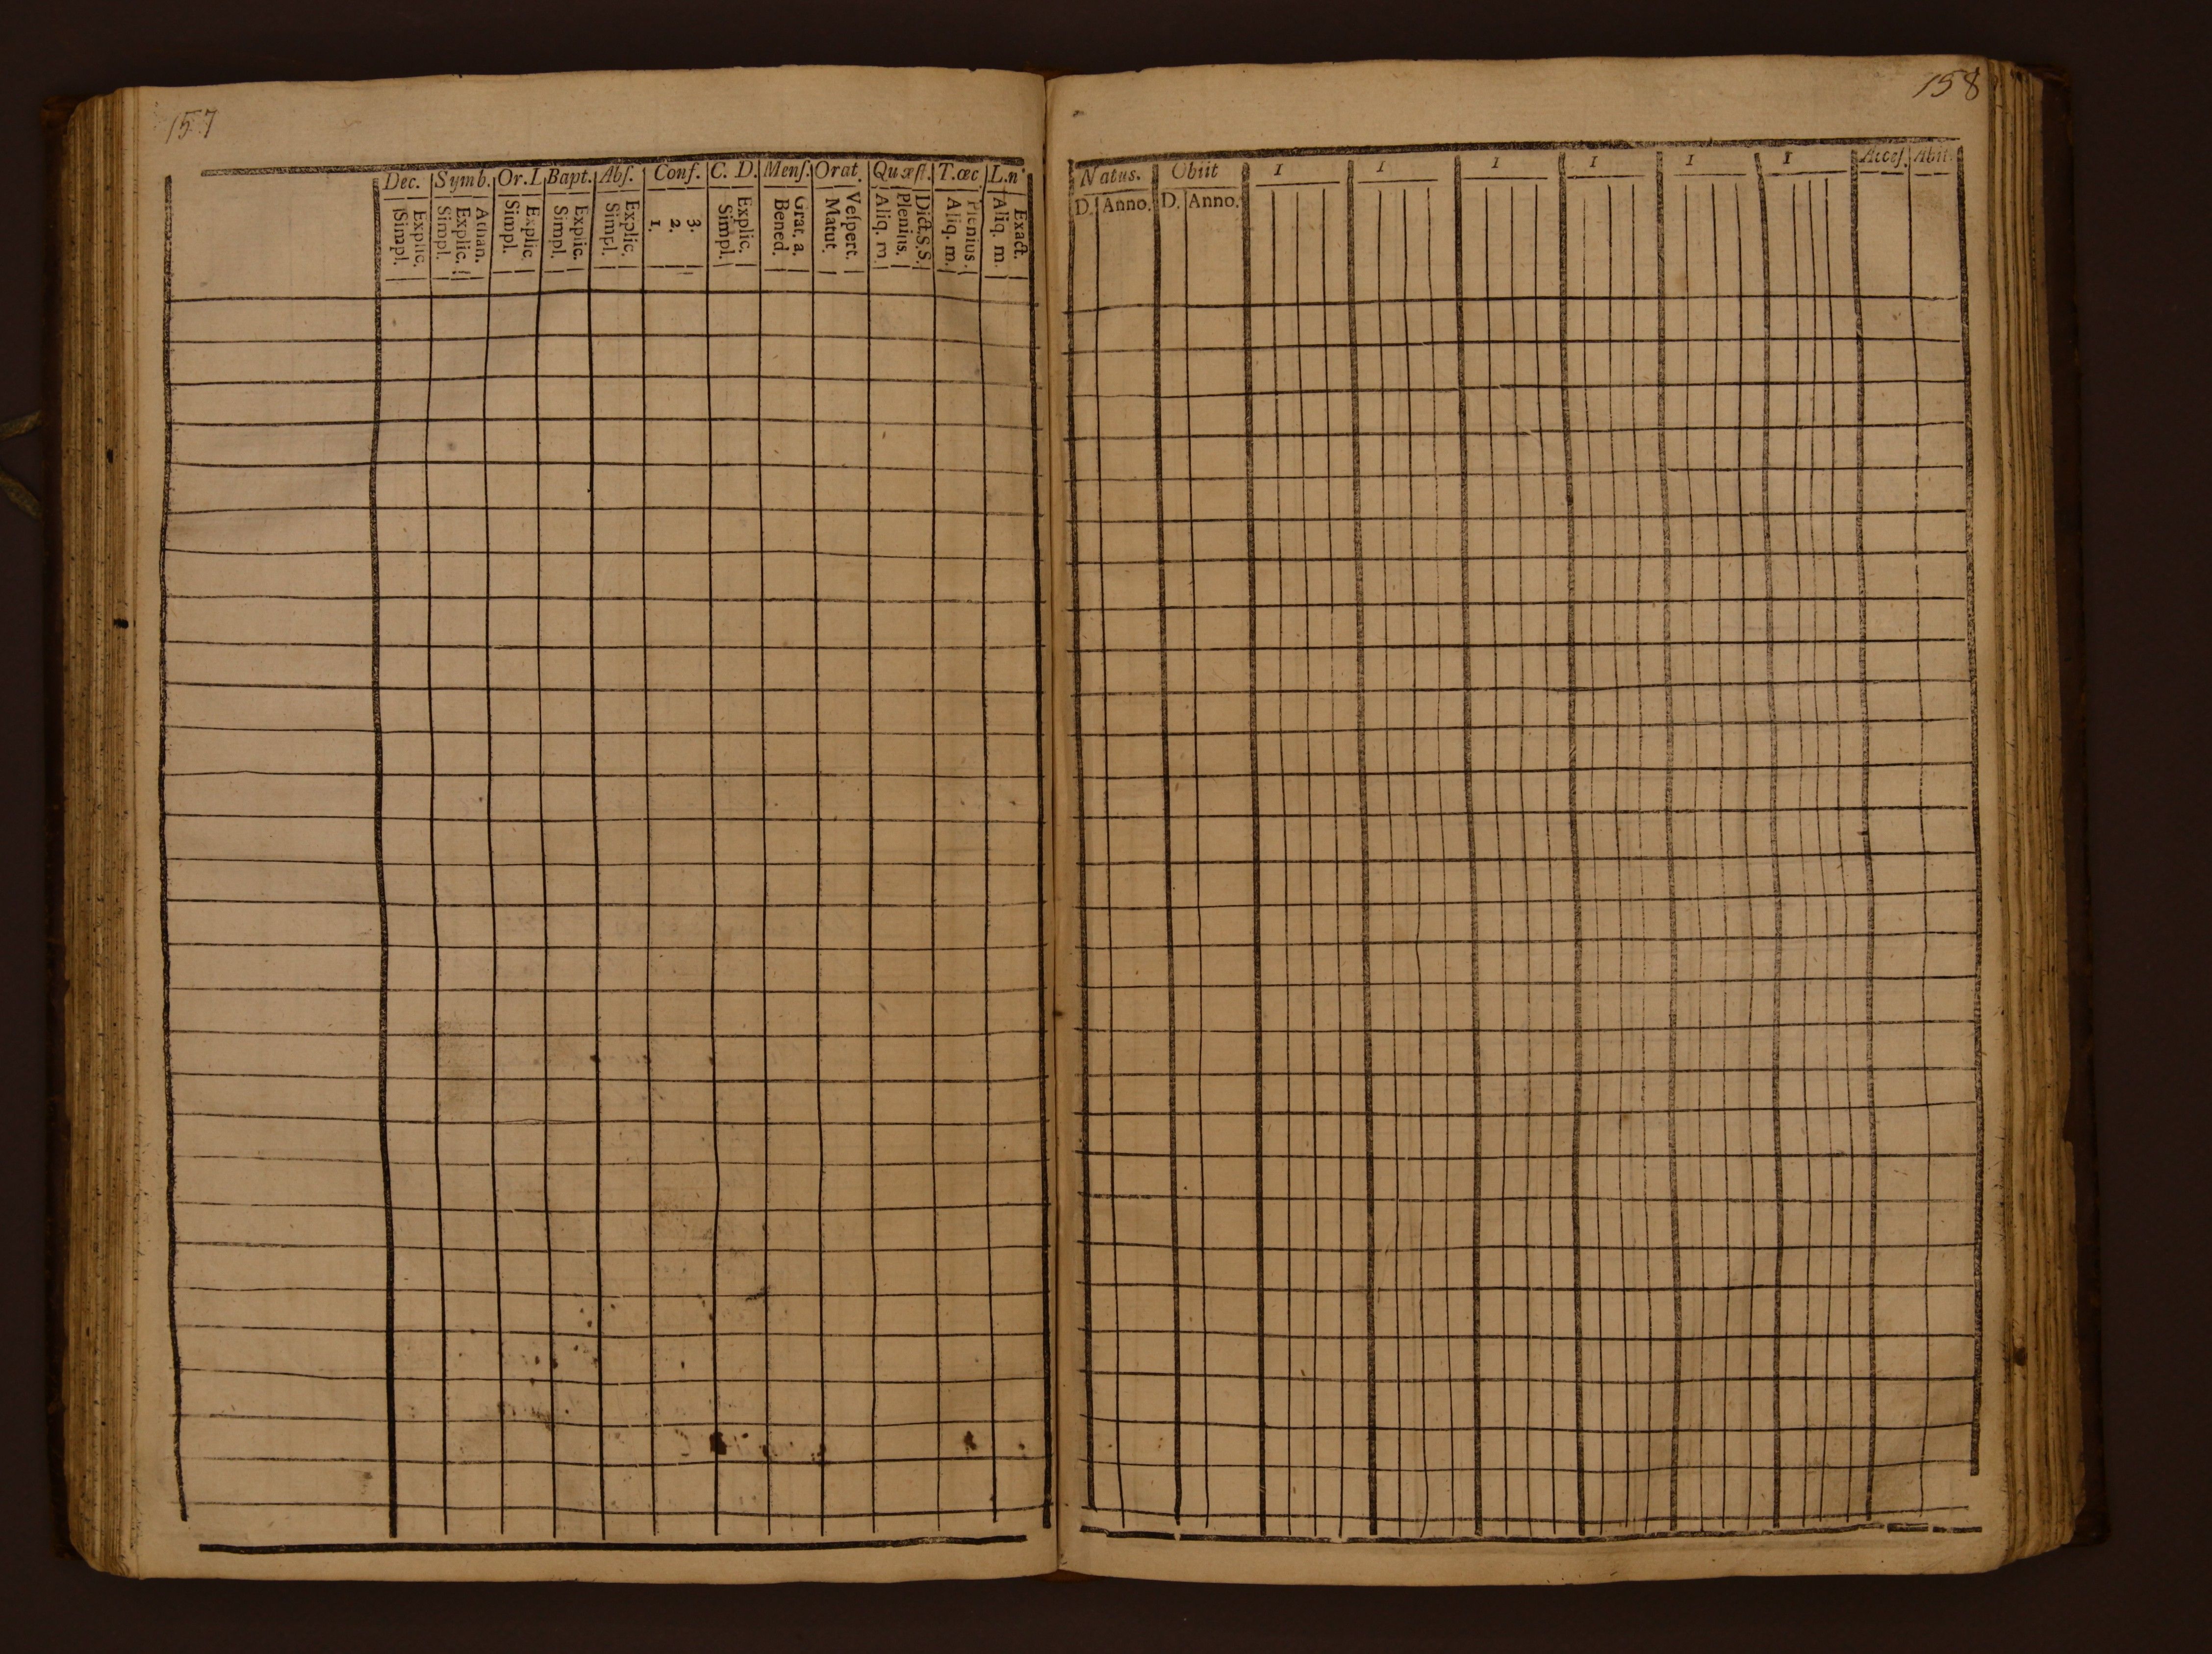 157
Dec. Symb. Or.I. Bapt. Abſ. Conf. C. D. Menſ. Orat. Quæſt. T.œc. L.n
Explic. Simpl. Athan. Explic. Simpl. Explic. Simpl. Explic. Simpl. Explic. Simpl. 3. 2. 1. Explic. Simpl. Grat. a. Bened. Veſpert. Matut. Dict.S.S. Plenius. Aliq. m. Plenius. Aliq. m. Exact. Aliq. m.
158
Natus. Obiit 1 1 1 1 1 1 Acceſ. Abit.
D. Anno. D. Anno.